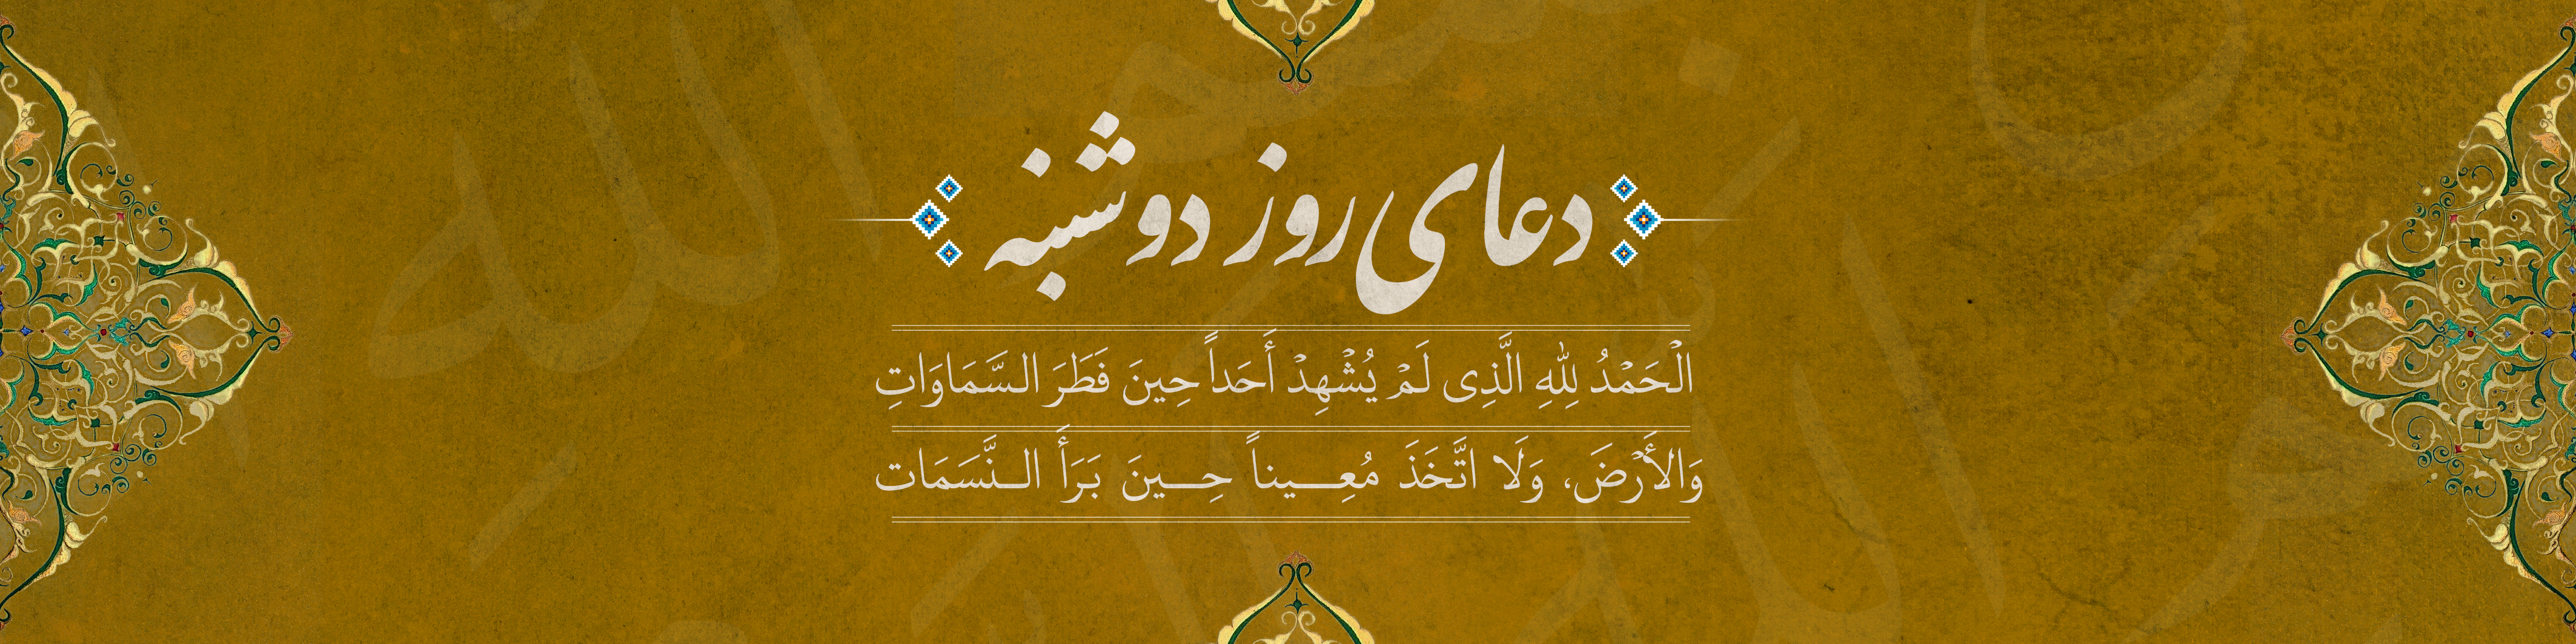 دعای روز دوشنبه
الْحَمْدُ لِلّٰهِ الَّذِی لَمْ یُشْهِدْ أَحَداً حِینَ فَطَرَ السَّمَاوَاتِ
وَالأَرْضَ، وَلَا اتَّخَذَ مُعِـــیناً حِـــینَ بَرَأَ النَّـسَمَات